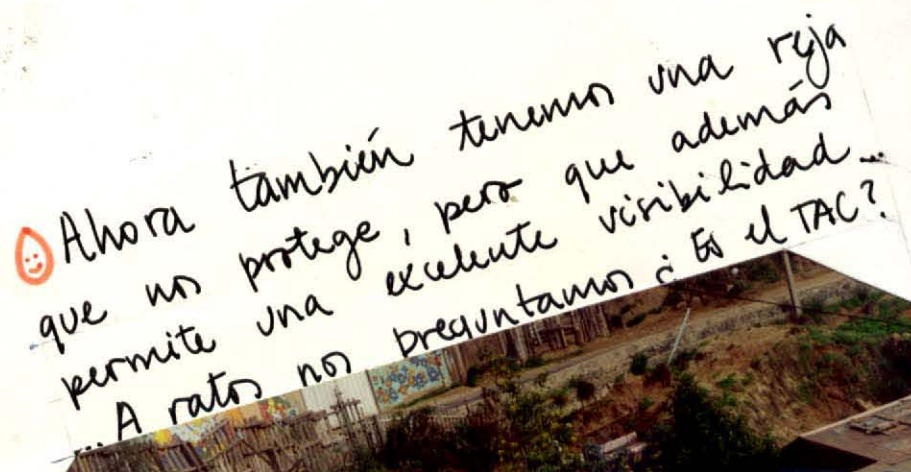 Ahora también tenemos una reja
que nos protege, pero que además
permite una excelente visibilidad...
...A ratos nos preguntamos ¿Es el TAC?